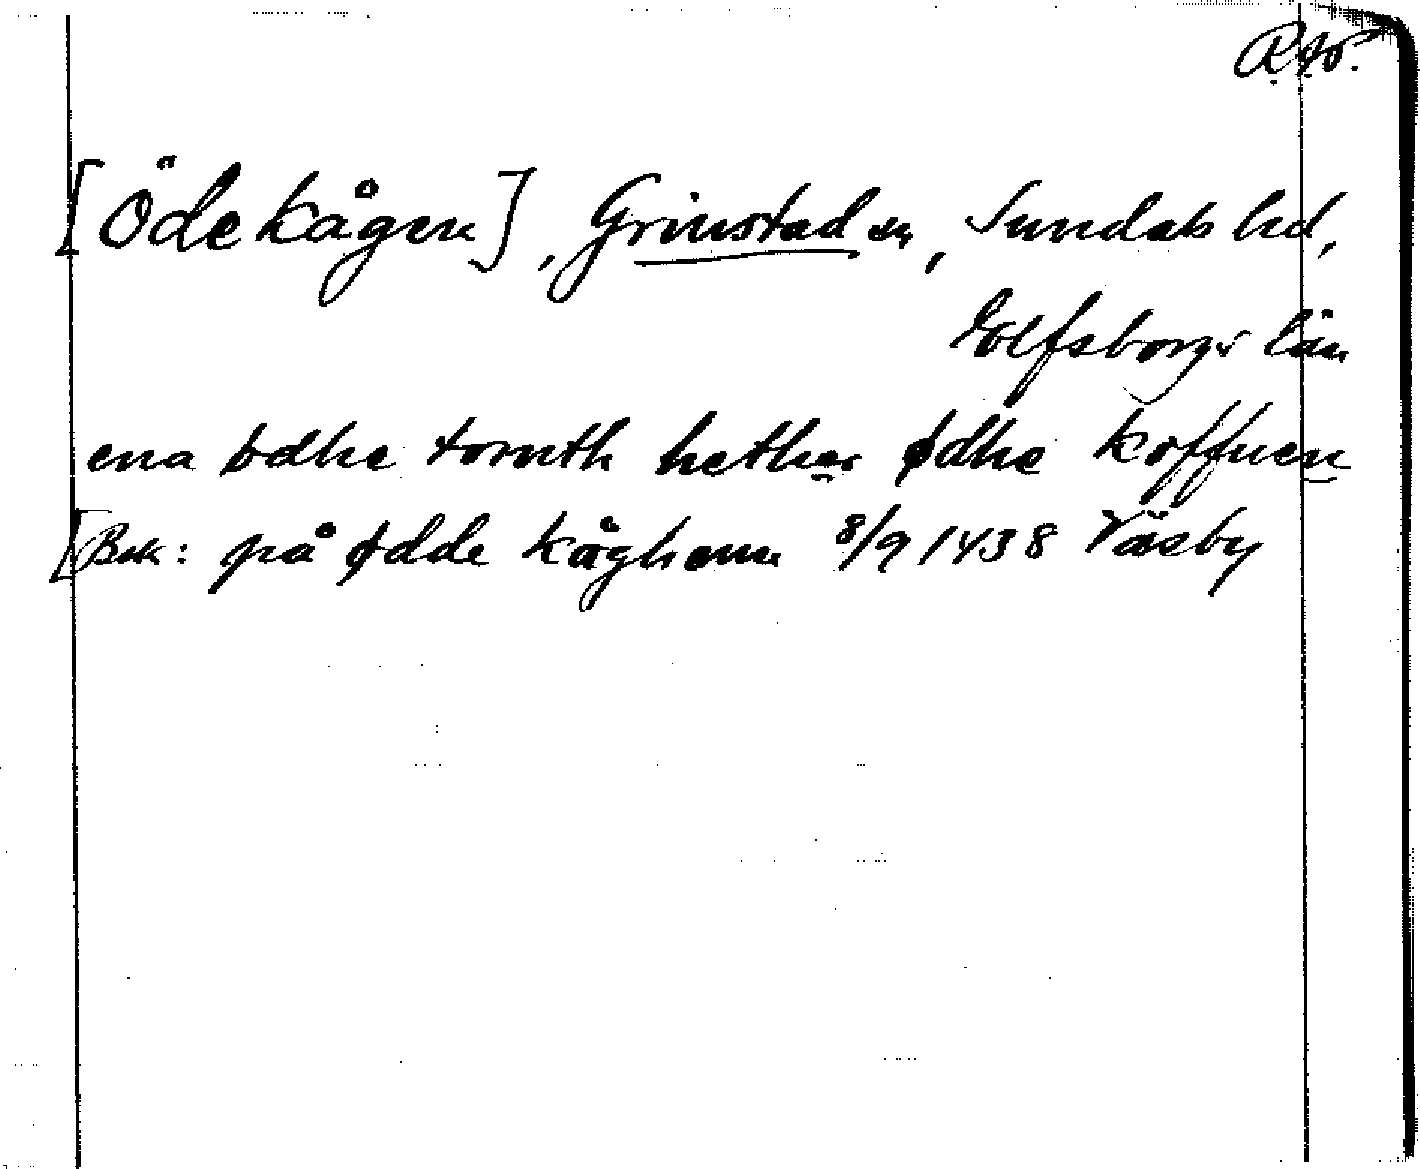 [Öde kågen], Grinstad sn, Sundals hd,
Elfsborgs län
ena ødhe tornth hether ødhe koffuen
[Bak: på ødde kåghenn 8/9 1438 Väsby